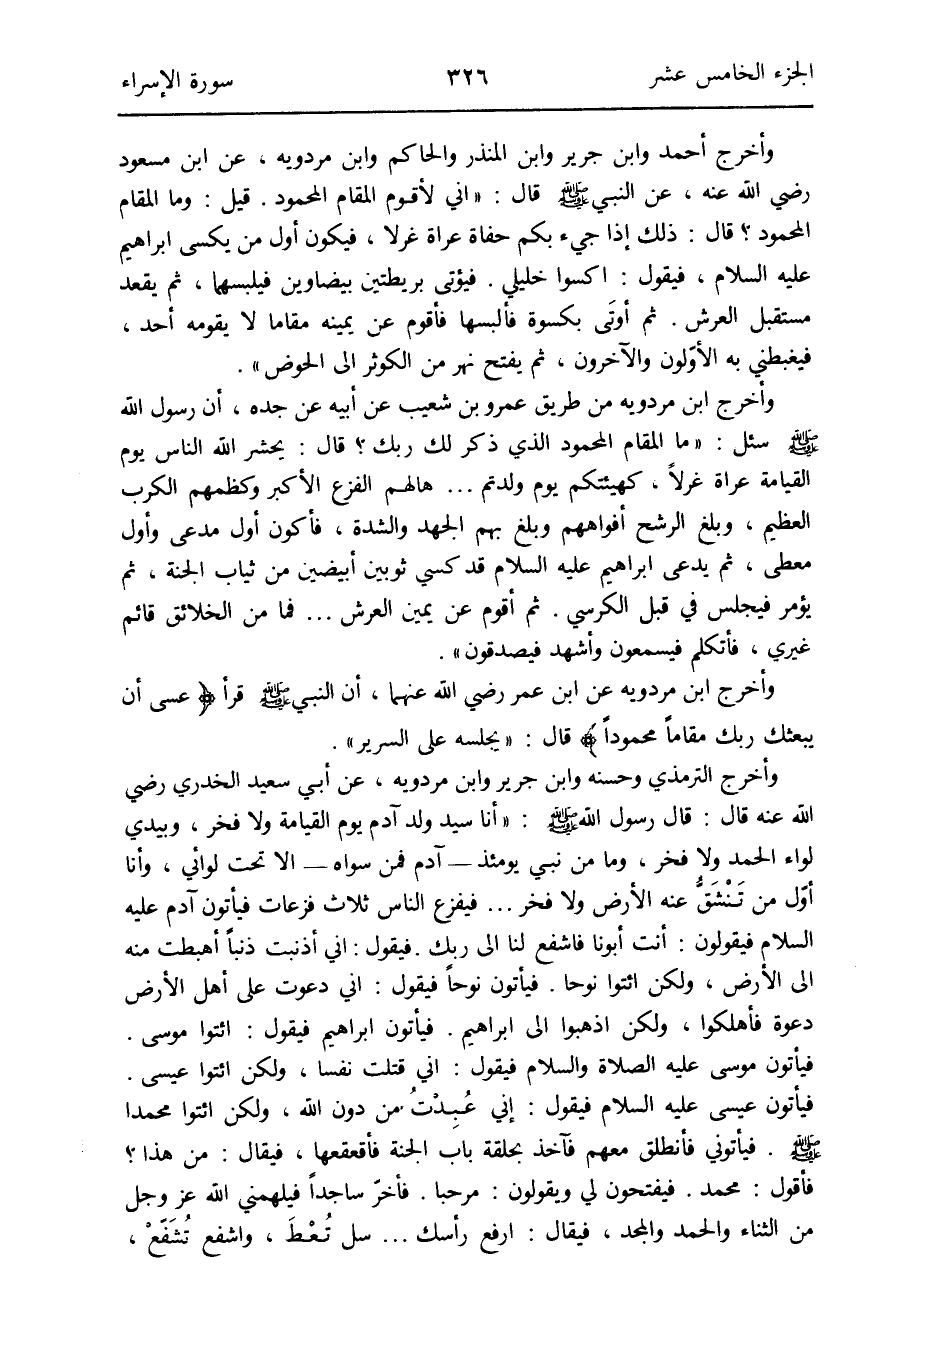 الجزء الخامس عشر ٣٢٦ سورة الإسراء
وأخرج أحمد وابن جرير وابن المنذر والحاكم وابن مردويه ، عن ابن مسعود
رضي الله عنه ، عن النبي ﷺ قال : « اني لأقوم المقام المحمود . قيل : وما المقام
المحمود ؟ قال : ذلك إذا جيء بكم حفاة عراة غرلا ، فيكون أول من يكسى ابراهيم
عليه السلام ، فيقول : اكسوا خليلي . فيؤتى بريطتين بيضاوين فيلبسها ، ثم يقعد
مستقبل العرش . ثم أوتَى بكسوة فألبسها فأقوم عن يمينه مقاما لا يقومه أحد ،
فيغبطني به الأوّلون والآخرون ، ثم يفتح نهر من الكوثر الى الحوض » .
وأخرج ابن مردويه من طريق عمرو بن شعيب عن أبيه عن جده ، أن رسول الله
ﷺ سئل : « ما المقام المحمود الذي ذكر لك ربك ؟ قال : يحشر الله الناس يوم
القيامة عراة غرلاً ، كهيئتكم يوم ولدتم ... هالهم الفزع الأكبر وكظمهم الكرب
العظيم ، وبلغ الرشح أفواههم وبلغ بهم الجهد والشدة ، فأكون أول مدعى وأول
معطى ، ثم يدعى ابراهيم عليه السلام قد كسي ثوبين أبيضين من ثياب الجنة ، ثم
يؤمر فيجلس في قبل الكرسي . ثم أقوم عن يمين العرش ... فما من الخلائق قائم
غيري ، فأتكلم فيسمعون وأشهد فيصدقون » .
وأخرج ابن مردويه عن ابن عمر رضي الله عنهما ، أن النبي ﷺ قرأ ﴿ عسى أن
يبعثك ربك مقاماً محموداً ﴾ قال : « يجلسه على السرير » .
وأخرج الترمذي وحسنه وابن جرير وابن مردويه ، عن أبي سعيد الخدري رضي
الله عنه قال : قال رسول الله ﷺ : « أنا سيد ولد آدم يوم القيامة ولا فخر ، وبيدي
لواء الحمد ولا فخر ، وما من نبي يومئذ ــ آدم فمن سواه ــ الا تحت لوائي ، وأنا
أوّل من تَنْشَقُّ عنه الأرض ولا فخر ... فيفزع الناس ثلاث فزعات فيأتون آدم عليه
السلام فيقولون : أنت أبونا فاشفع لنا الى ربك . فيقول : اني أذنبت ذنباً أهبطت منه
الى الأرض ، ولكن ائتوا نوحا . فيأتون نوحاً فيقول : اني دعوت على أهل الأرض
دعوة فأهلكوا ، ولكن اذهبوا الى ابراهيم . فيأتون ابراهيم فيقول : ائتوا موسى .
فيأتون موسى عليه الصلاة والسلام فيقول : اني قتلت نفسا ، ولكن ائتوا عيسى .
فيأتون عيسى عليه السلام فيقول : إني عُبِدْتُ من دون الله ، ولكن ائتوا محمدا
ﷺ . فيأتوني فأنطلق معهم فآخذ بحلقة باب الجنة فأقعقعها ، فيقال : من هذا ؟
فأقول : محمد . فيفتحون لي ويقولون : مرحبا . فأخرّ ساجداً فيلهمني الله عز وجل
من الثناء والحمد والمجد ، فيقال : ارفع رأسك ... سل تُعْطَ ، واشفع تُشَفَّعْ ،